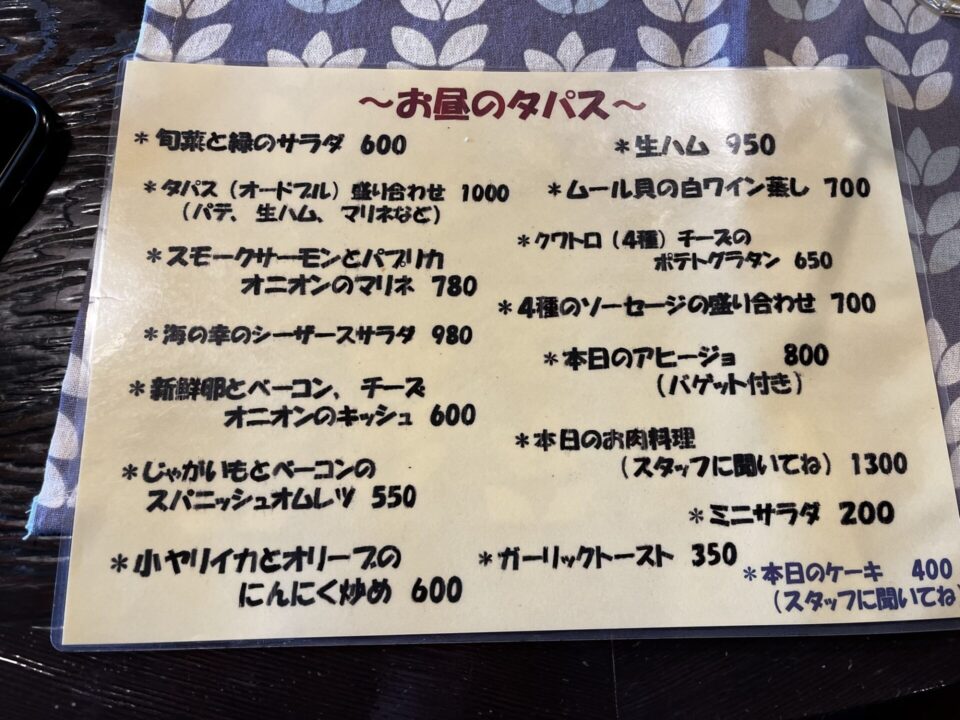 ～お昼のタパス～
＊旬菜と緑のサラダ 600
＊タパス（オードブル）盛り合わせ 1000
（パテ、生ハム、マリネなど）
＊スモークサーモンとパプリカ
オニオンのマリネ 780
＊海の幸のシーザースサラダ 980
＊新鮮卵とベーコン、チーズ
オニオンのキッシュ 600
＊じゃがいもとベーコンの
スパニッシュオムレツ 550
＊小ヤリイカとオリーブの
にんにく炒め 600
＊生ハム 950
＊ムール貝の白ワイン蒸し 700
＊クワトロ（4種）チーズの
ポテトグラタン 650
＊4種のソーセージの盛り合わせ 700
＊本日のアヒージョ 800
（バゲット付き）
＊本日のお肉料理
（スタッフに聞いてね）1300
＊ミニサラダ 200
＊ガーリックトースト 350
＊本日のケーキ 400
（スタッフに聞いてね